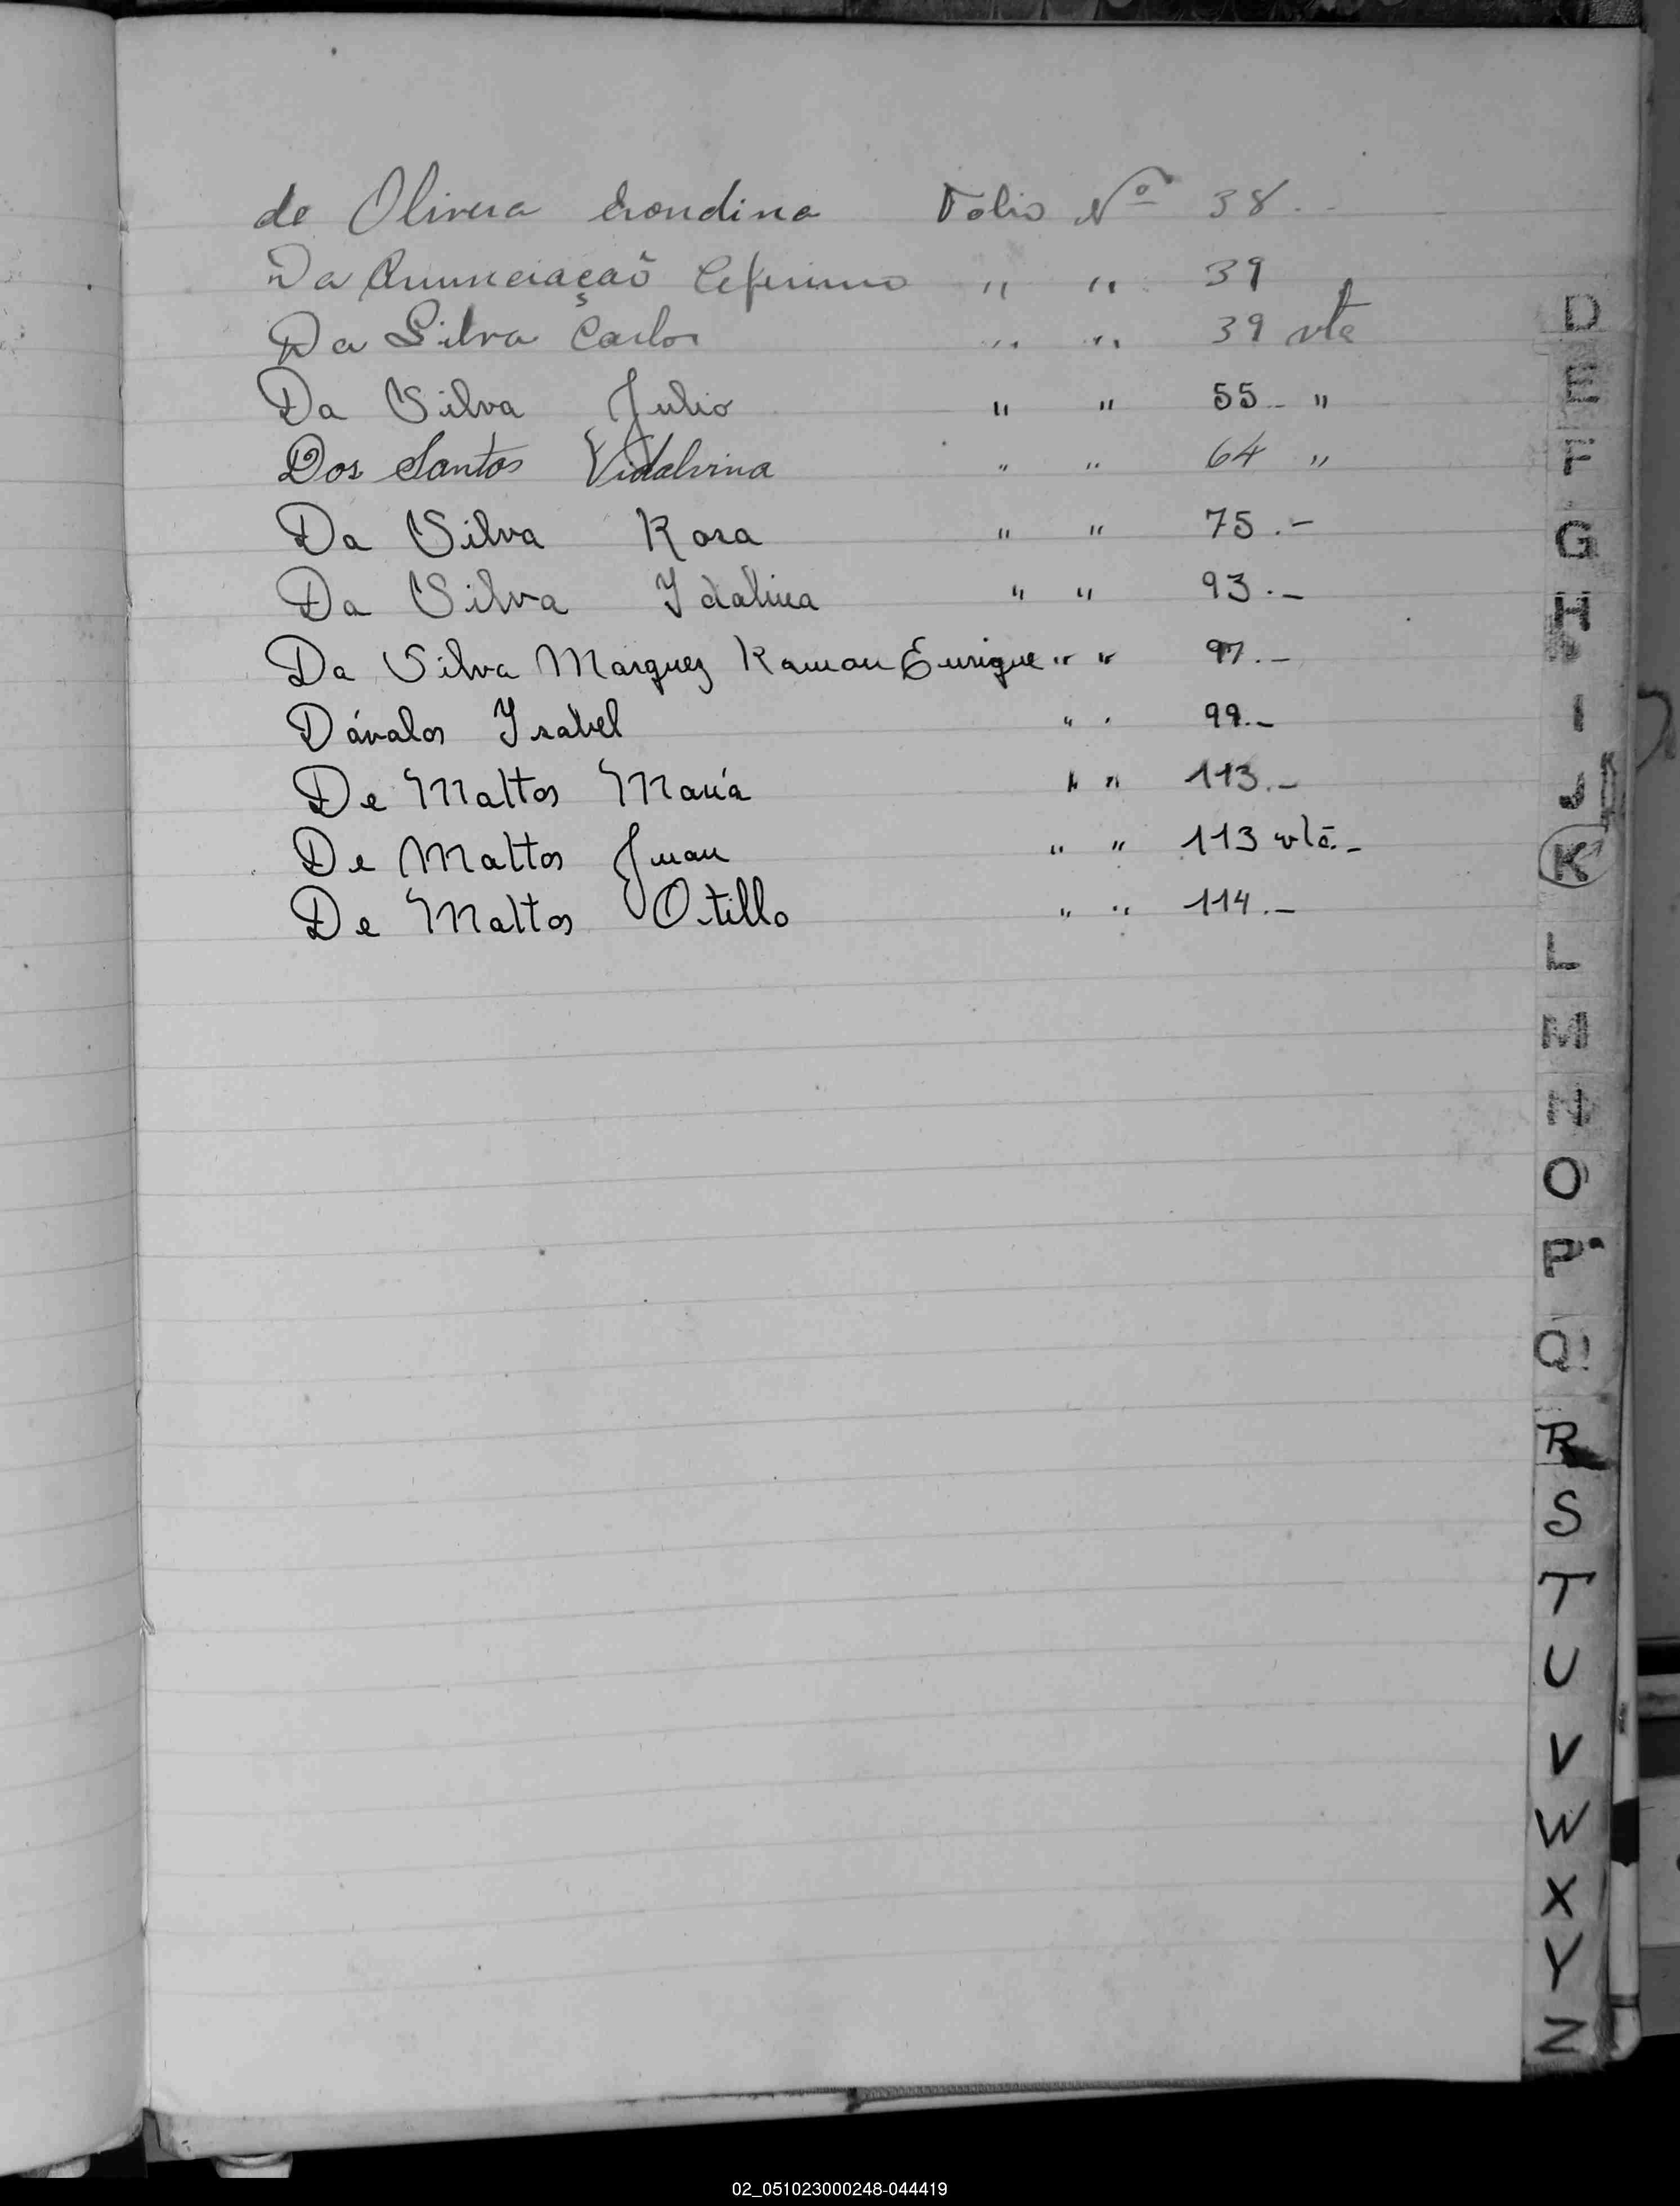 de Olivera Folio Nº 38.-
Da Anunciaçaõ Ceferino " " 39
Da Silva Carlos " " 39 vta
Da Silva Julio " " 55.- "
Dos Santos Vidalvina " " 64 "
Da Silva Rosa " " 75.-
Da Silva Ydalina " " 93.-
Da Silva Marquez Ramon Enrique " " 97.-
Dávalos Ysabel " " 99.-
De Mattos María " " 113.-
De Mattos Juan " " 113 vta.-
De Mattos Otillo " " 114.-
D
E
F
G
H
I
J
K
L
M
N
O
P
Q
R
S
T
U
V
W
X
Y
Z
02_051023000248-044419